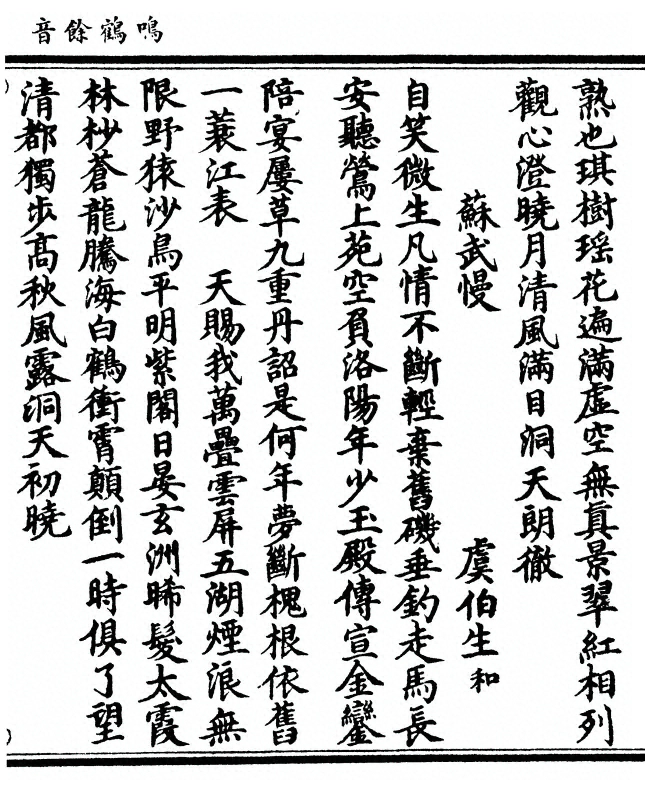 鳴鶴餘音
熟也琪樹瑶花遍滿虛空無真景翠紅相列
觀心澄曉月清風滿目洞天朗徹
蘇武慢 虞伯生和
自笑微生凡情不斷輕棄舊磯垂釣走馬長
安聽鶯上苑空負洛陽年少玉殿傳宣金鑾
陪宴屢草九重丹詔是何年夢斷槐根依舊
一蓑江表 天賜我萬疊雲屏五湖煙浪無
限野猿沙鳥平明紫閣日晏玄洲晞髮太霞
林杪蒼龍騰海白鶴衝霄顛倒一時俱了望
清都獨步高秋風露洞天初曉